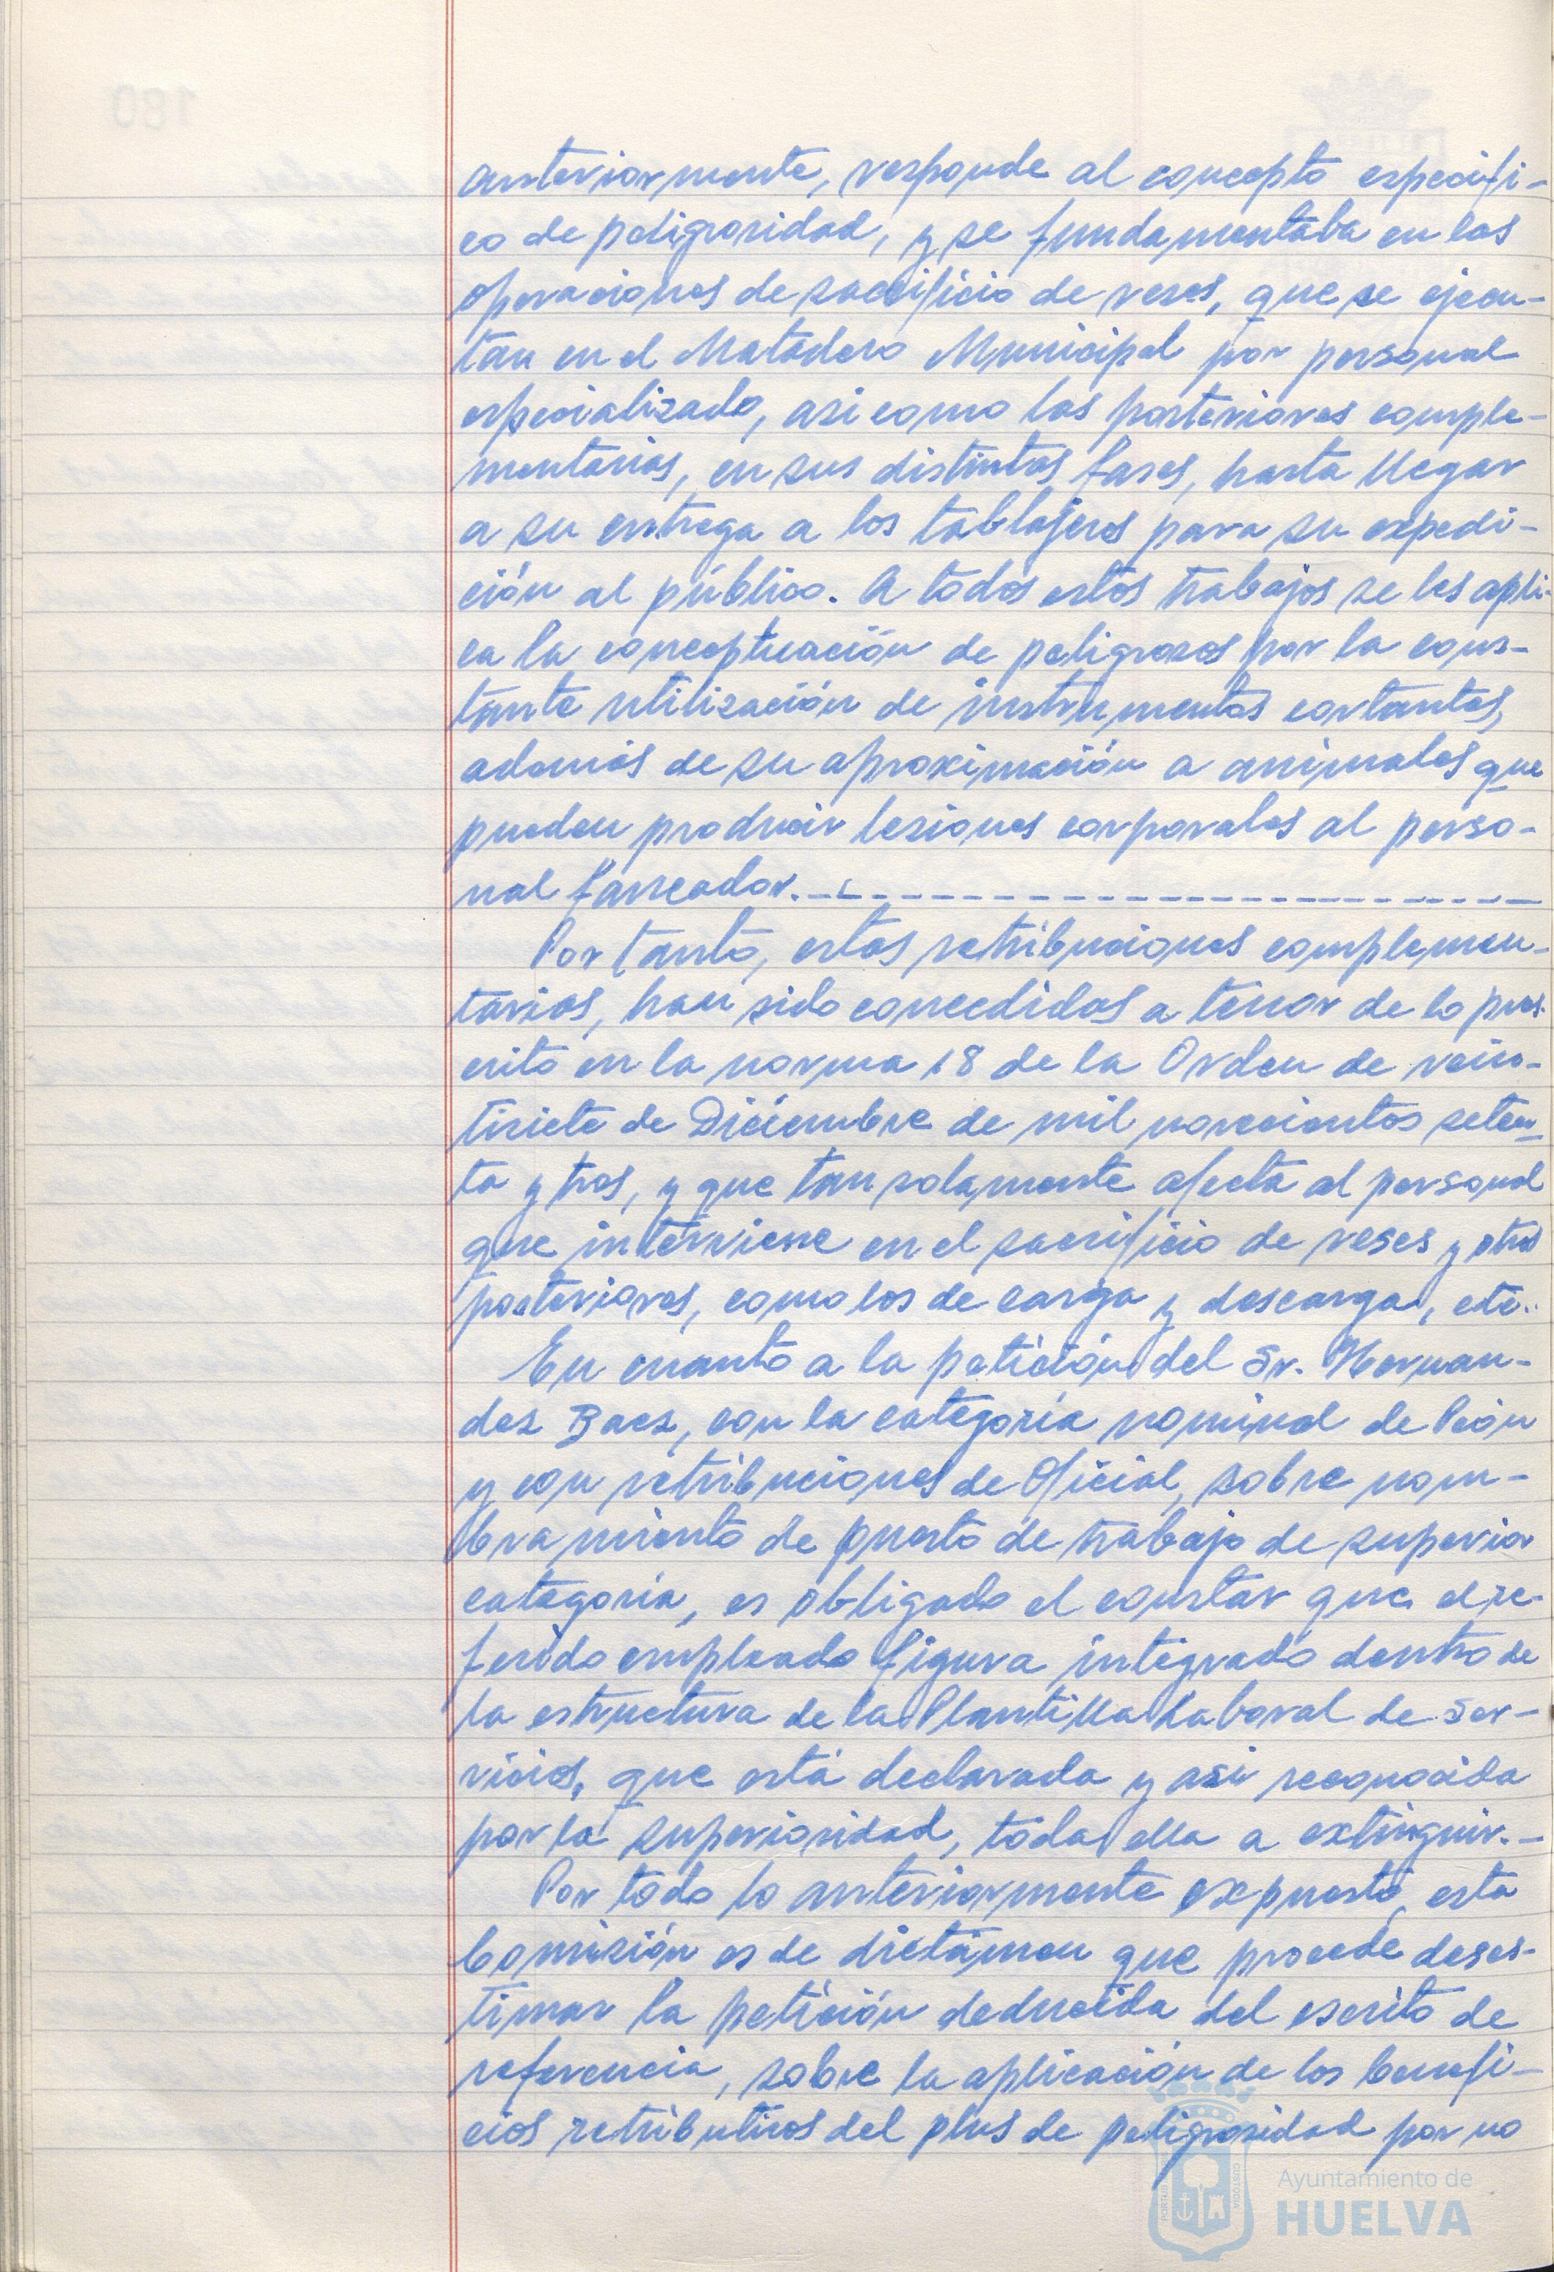 anteriormente, responde al concepto específi-
co de peligrosidad, y se fundamentaba en las
operaciones de sacrificio de reses, que se ejecu-
tan en el Matadero Municipal por personal
especializado, asi como las posteriores comple-
mentarias, en sus distintas fases, hasta llegar
a su entrega a los tablajeros para su expedi-
ción al público. A todos estos trabajos se les apli-
ca la conceptuación de peligrosos por la cons-
tante utilización de instrumentos cortantes,
además de su aproximación a animales que
pueden producir lesiones corporales al perso-
nal faneador.
Por tanto, estas retribuciones complemen-
tarias, han sido concedidas a tenor de lo pres-
crito en la norma 18 de la Orden de vein-
tisiete de Diciembre de mil novecientos seten-
ta y tres, y que tan solamente afecta al personal
que interviene en el sacrificio de reses y otros
posteriores, como los de carga y descarga, etc..
En cuanto a la petición del Sr. Hernan-
dez Baez, con la categoría nominal de Peón
y con retribuciones de Oficial, sobre nom-
bramiento de puesto de trabajo de superior
categoría, es obligado el constar que el re-
ferido empleado figura integrado dentro de
la estructura de la Plantilla Laboral de Ser-
vicios, que está declarada y asi reconocida
por la superioridad, toda ella a extinguir.-
Por todo lo anteriormente expuesto, esta
Comisión es de dictámen que procede deses-
timar la petición deducida del escrito de
referencia, sobre la aplicación de los benefi-
cios retributivos del plus de peligrosidad por no
Ayuntamiento de
HUELVA